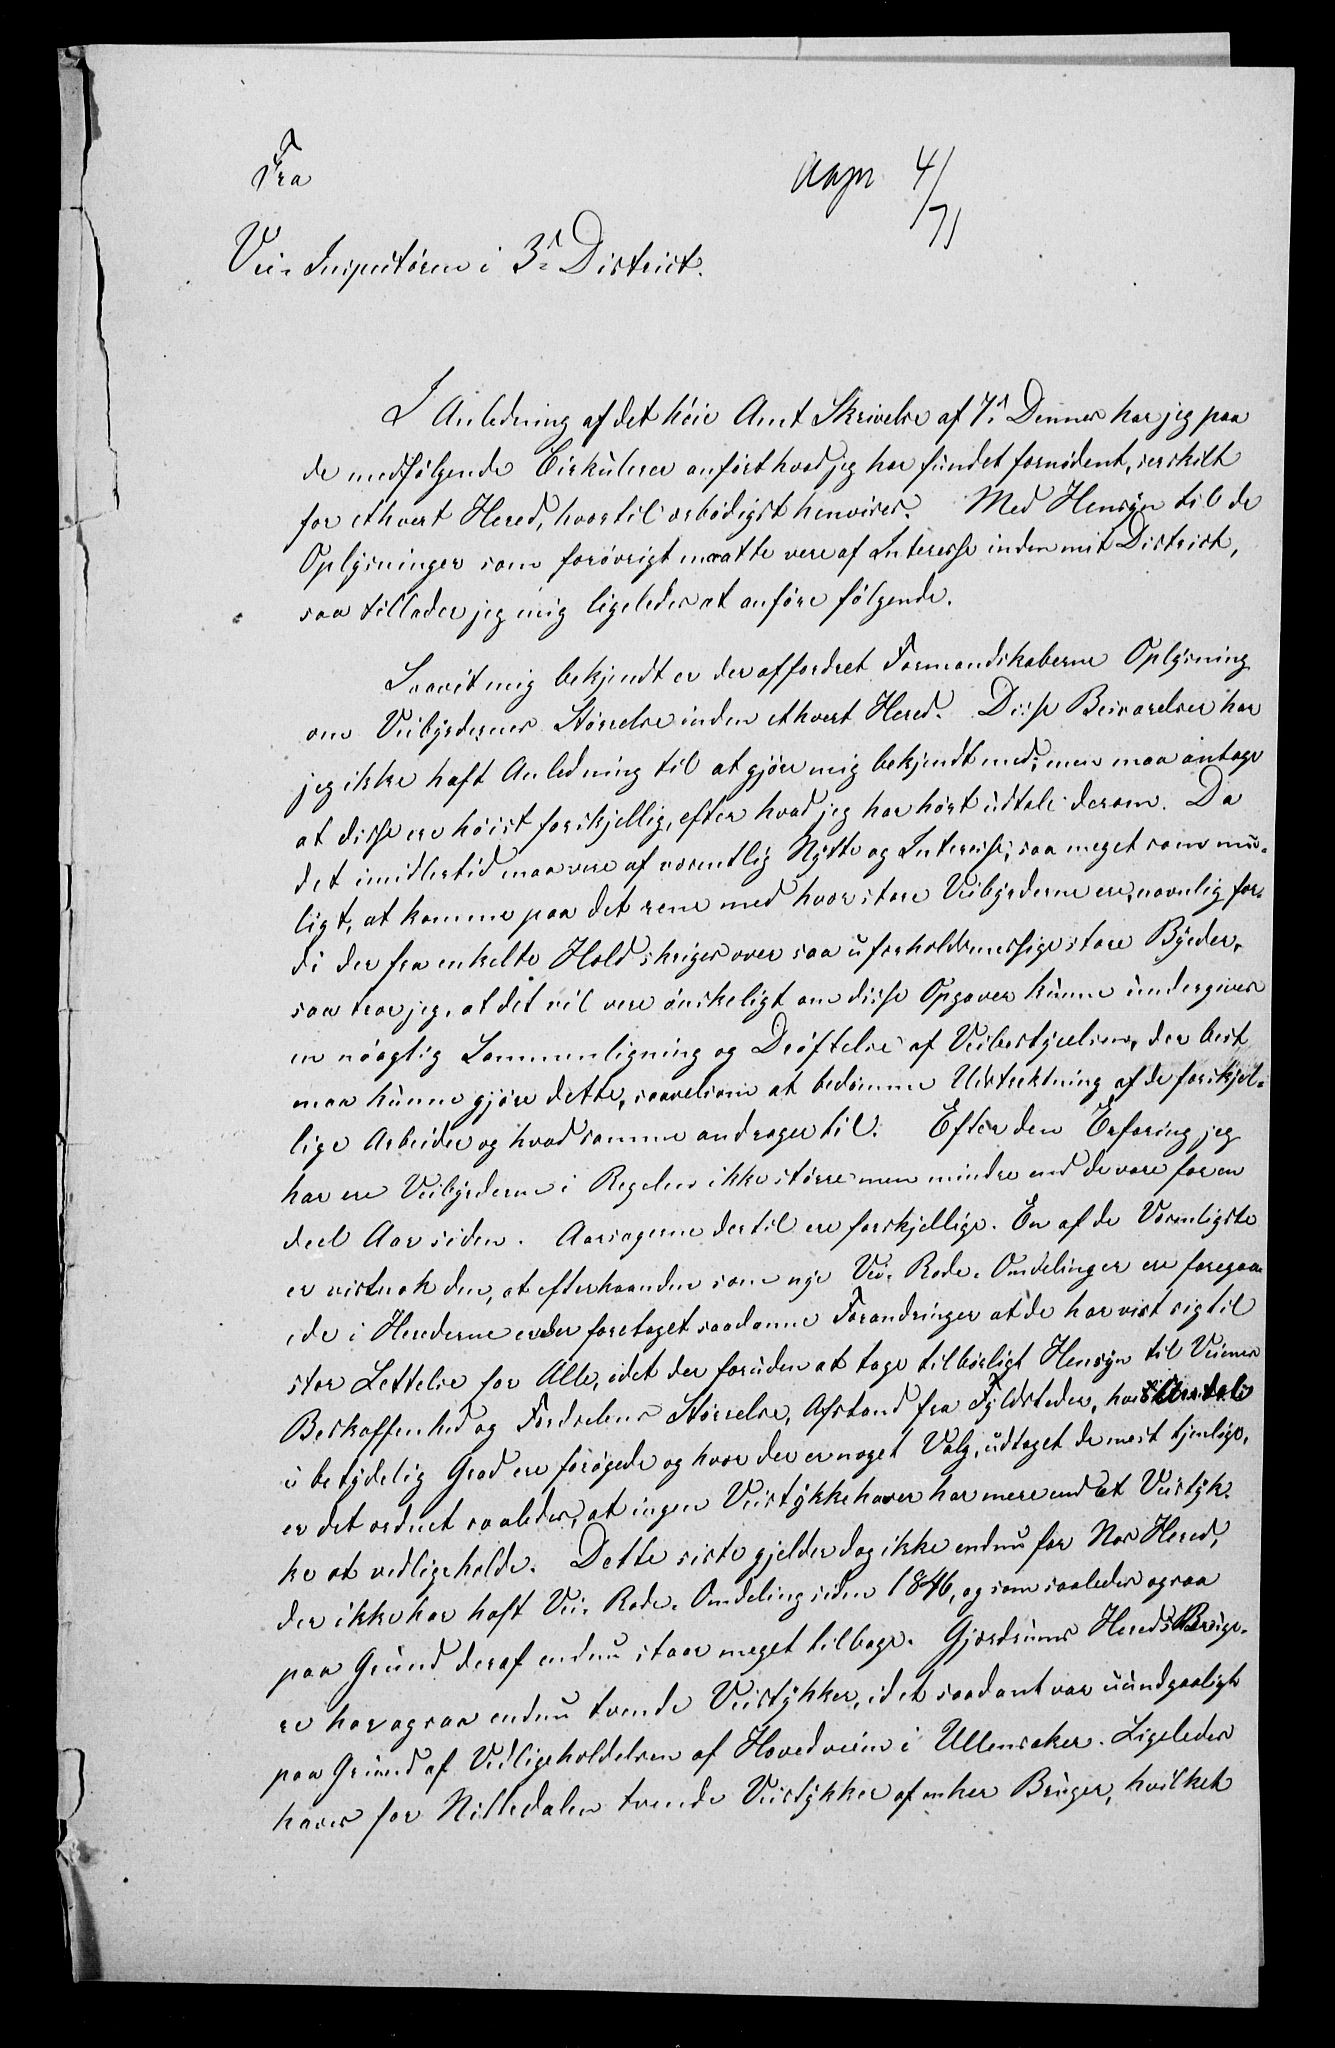 Fra
4/71
Vei-Inspectøren i 3die District.
I Anledning af det høie Amt Skrivelse af 7de Dennes har jeg paa
de medfølgende Cirkulerer anført hvad jeg har fundet fornødent, serskilt
for ethvert Hered, hvortil ærbødigst henvises. Med Hensyn til de
Oplysninger som forøvrigt maatte vere af Interesse inden mit District,
saa tillader jeg mig ligeledes at anføre følgende.
Saavit mig bekjendt er der affordret Formandskaberne Oplysning
om Veibyrdernes Størrelse inden ethvert Hered. Disse Besvarelser har
jeg ikke haft Anledning til at gjøre mig bekjendt med, men maa antage
at disse ere høist forskjellig, efter hvad jeg har hørt udtale derom. Da
det imidlertid maa vere af vesentlig Nytte og Interesse, saa meget som mu-
ligt, at komme paa det rene med hvor store Veibyrderne ere, navnlig for-
di der fra enkelte Hold skriges over saa uforholdsmessige store Byrder,
saa tror jeg, at det vil vere ønskeligt om disse Opgaver kunne undergives
en nøagtig Sammenligning og Drøftelse af Veibestyrelsen, der best
maa kunne gjøre dette, saavelsom at bedømme Udstrektning af de forskjel-
lige Arbeider og hvad samme andrager til. Efter den Erfaring jeg
har ere Veibyrderne i Regelen ikke større men mindre end de vare for en
deel Aar siden. Aarsagerne dertil ere forskjellige. En af de Vesenligste
er vistnok den, at efterhaanden som nye Vei-Rode-Omdelinger ere foregaa-
ede i Herederne er der foretaget saadanne Forandringer at de har vist sig til
stor Lettelse for Alle, idet der foruden at tage tilbørligt Hensyn til Veienes
Beskaffenhed og Ferdselens Størrelse, Afstand fra Fyldsteder, hvis Antal
i betydelig Grad ere forøgede og hvor der er noget Valg, udtaget de mest tjenlige,
er det ordnet saaledes, at ingen Veistykkehaver har mere end et Veistyk-
ke at vedligeholde. Dette siste gjelder dog ikke endnu for Nes Hered,
der ikke har haft Vei-Rode-Omdeling siden 1846, og som saaledes ogsaa
paa Grund deraf endnu staar meget tilbage. Gjerdrums Hereds Bruge-
re har ogsaa endnu tvende Veistykker, idet saadant var uundgaaligt
paa Grund af Vedligeholdelsen af Hovedveien i Ullensaker. Ligeledes
haves for Nittedalen tvende Veistykker af enher Bruger, hvilket